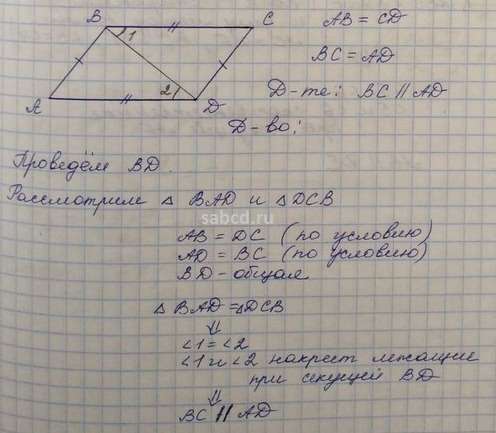 B 1 C
2
A D
AB = CD
BC = AD
Д-те: BC || AD
Д-во:
Проведём BD.
Рассмотрим △ BAD и △ DCB
sabcd.ru
AB = DC (по условию)
AD = BC (по условию)
BD - общая
△ BAD = △ DCB
⇓
<1 = <2
<1 и <2 накрест лежащие
при секущей BD
⇓
BC || AD